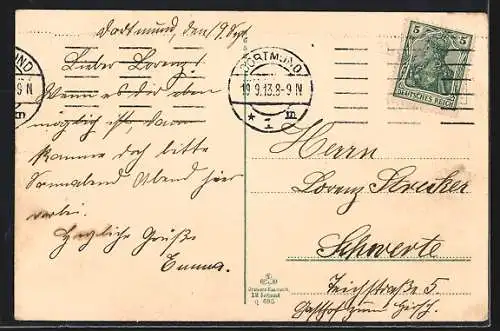 Dortmund, den 19. Sept.
Lieber Lorenz!
Wenn es dir eben
möglich ist, dann
komme doch bitte
Sonnabend Abend hier
vorbei.
Herzliche Grüße
Emma.
DORTMUND
19.9.13.8-9 N
* 1 n
MUND
9 N
n
5 5
DEUTSCHES REICH
Herrn
Lorenz Strecker
Schwerte
Teichstraße 5
Gasthof zum Hirsch.